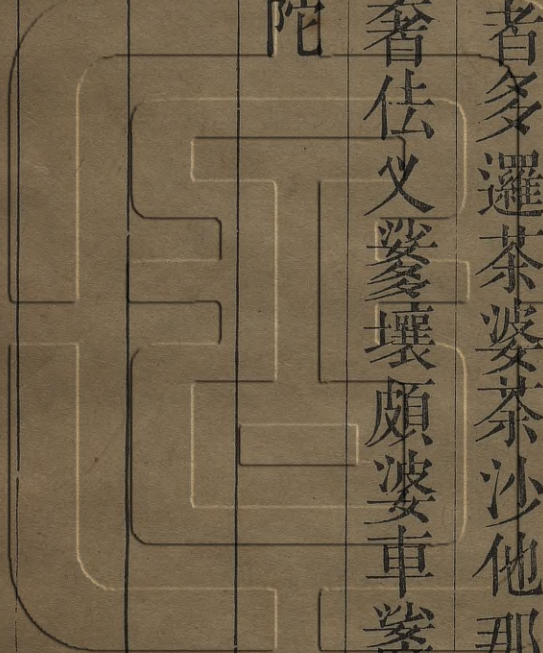 者多邏茶婆茶沙他那
奢呿叉壤頗婆車
陀